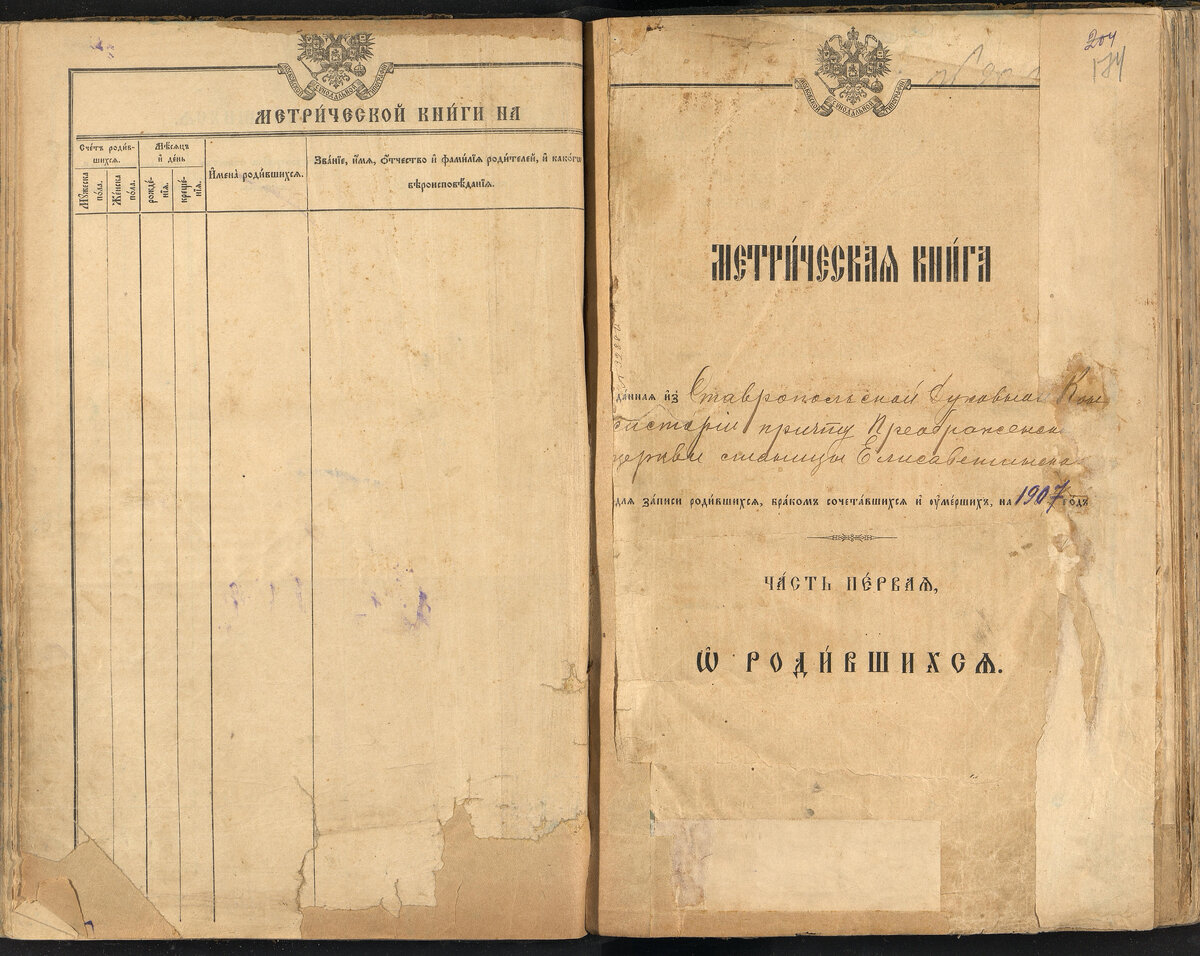 МЕТРИ́ЧЕСКОЙ КНИ́ГИ НА
Сче́тъ роди́в-
шихся.
Мѣ́сяцъ
и҆ де́нь
И҆мена̀ роди́вшихся.
Зва́нїе, и҆́мѧ, ѻ҆́тчество и҆ фами́лїѧ роди́телей, и҆ како́гѡ
вѣроисповѣ́данїѧ.
Мꙋ́жеска
по́ла.
Же́нска
по́ла.
рожде́-
нїѧ.
креще́-
нїѧ.
204
174
МОСКОВСКОЙ СѴНОДАЛЬНОЙ ТИПОГРАФІИ
МЕТРИ́ЧЕСКАѦ КНИ́ГА
да́нная и҆з̾ Ставропольской Духовной Кон
систоріи причту Преображенск
церкви станицы Елисаветинской
для за́писи роди́вшихся, бра́комъ сочета́вшихся и҆ ᲂу҆ме́рших, на 1907 го́дъ
ЧА́СТЬ ПЕ́РВАѦ,
Ѽ РОДИ́ВШИХСѦ.